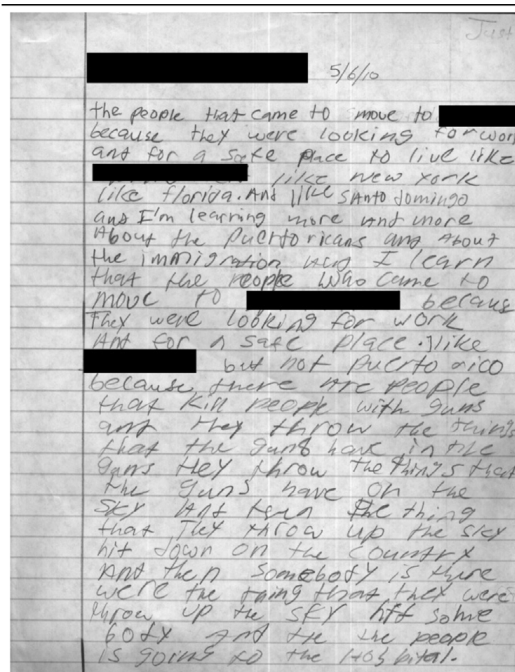 Just
5/6/10
the people that came to move to
because they were looking for work
and for a safe place to live like
like New York
like florida. And like SAnto domingo
and I'm learning more and more
About the Puertoricans and About
the immigration and I learn
that the people who came to
move to becaus
They were looking for work
And for A safe place. I like
but not Puerto rico
because there Are people
that Kill people with guns
and they throw the things
that the guns have in the
guns they throw the things that
the guns have on the
SKY And then the thing
that They throw up the sky
hit down on the country
And then somebody is there
were the thing that they were
throw up the SKY hit some
body And the the people
is going to the Hosbital.